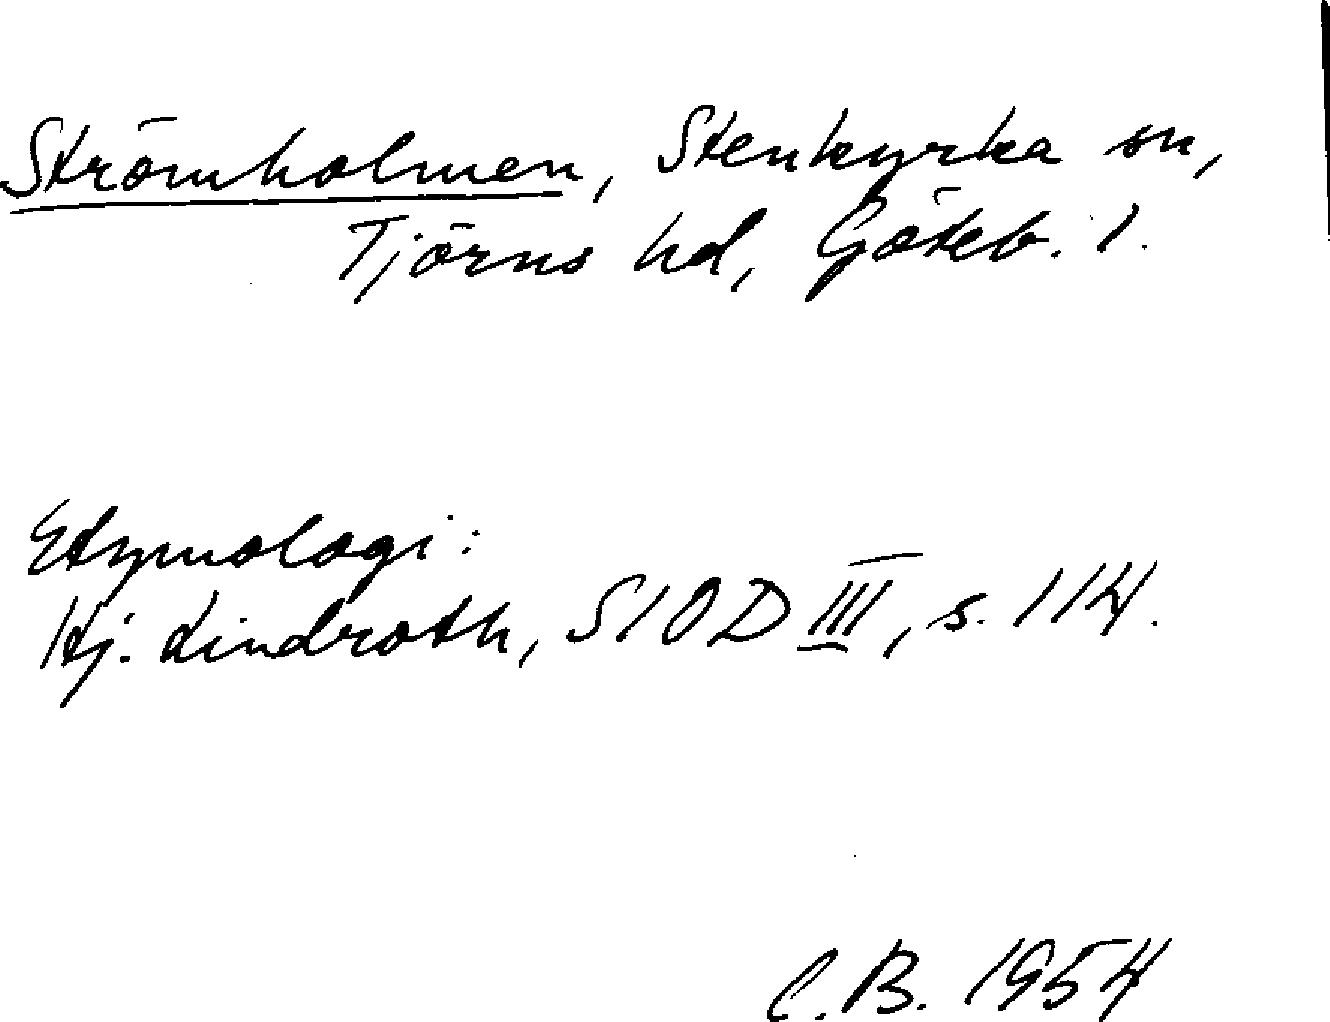 Strömholmen, Stenkyrka sn,
Tjörns hd, Göteb. l.
Etymologi:
Hj. Lindroth, SIOD III, s. 114.
C.B. 1954